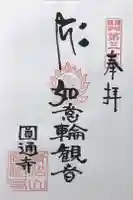 奉拝
如意輪観音
圓通寺